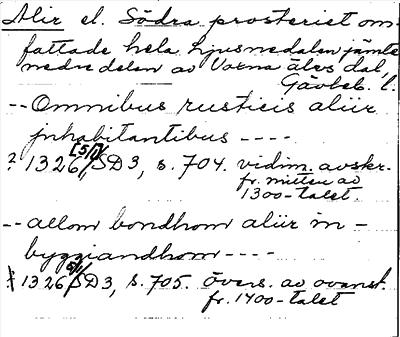 Alir el. Södra prosteriet om-
fattade hela Ljusnedalen jämte
nedre delen av Voxna älvs dal,
Gävleb. l.
-- Omnibus rusticis aliir
jnhabitantibus ----
? 1326 5/1 SD 3, s. 704. vidim. avskr.
fr. mitten av
1300-talet.
-- allom bondhom aliir in-
byggiandhom ----
1326 5/1 SD 3, s. 705. övers. av ovanst.
fr. 1400-talet